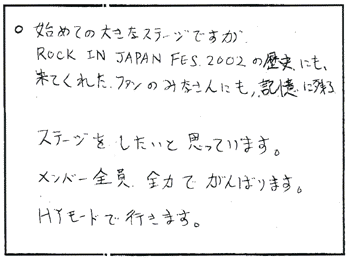 ○ 始めての大きなステージですが、
ROCK IN JAPAN FES. 2002 の歴史にも、
来てくれた、ファンのみなさんにも、記憶に残る
ステージをしたいと思っています。
メンバー全員、全力でがんばります。
HYモードで行きます。